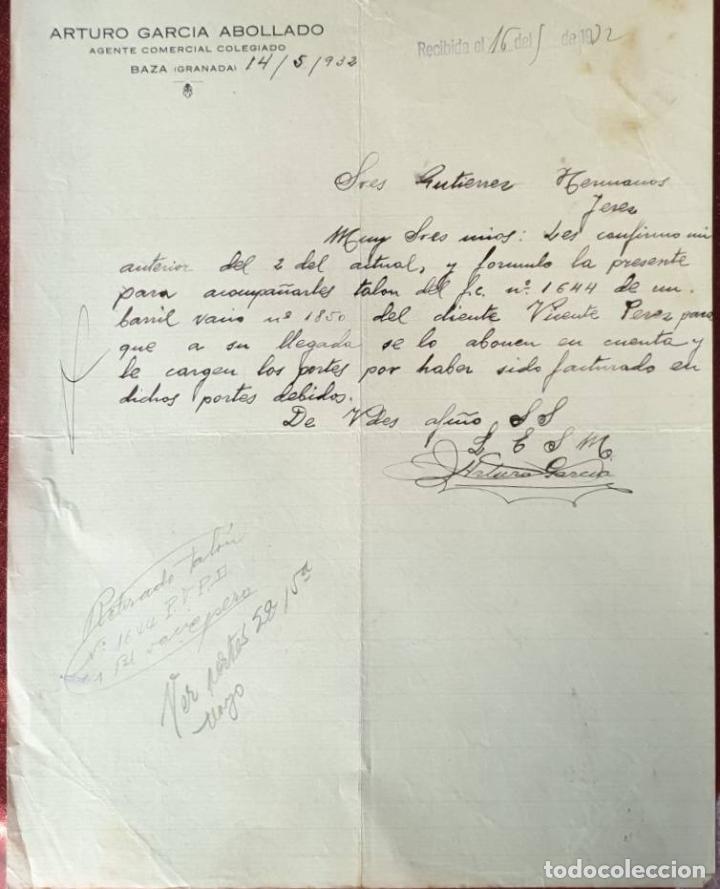 ARTURO GARCIA ABOLLADO
AGENTE COMERCIAL COLEGIADO
BAZA (GRANADA) 14/5/932
Recibida el 16 del 5 de 1932
Sres Gutierrez Hermanos
Jerez
Muy Sres mios: Les confirmo mi
anterior del 2 del actual, y formulo la presente
para acompañarles talon del f.c. nº. 1644 de un
barril vacio nº 1850 del cliente Vicente Perez para
que a su llegada se lo abonen en cuenta y
le cargen los portes por haber sido facturado en
dichos portes debidos.
De Vdes afmo S S
L E S M.
Arturo Garcia
Retirado talón
Nº 1644 P.V P.D
Ver portes 2ª 15ª
Mayo
todocoleccion